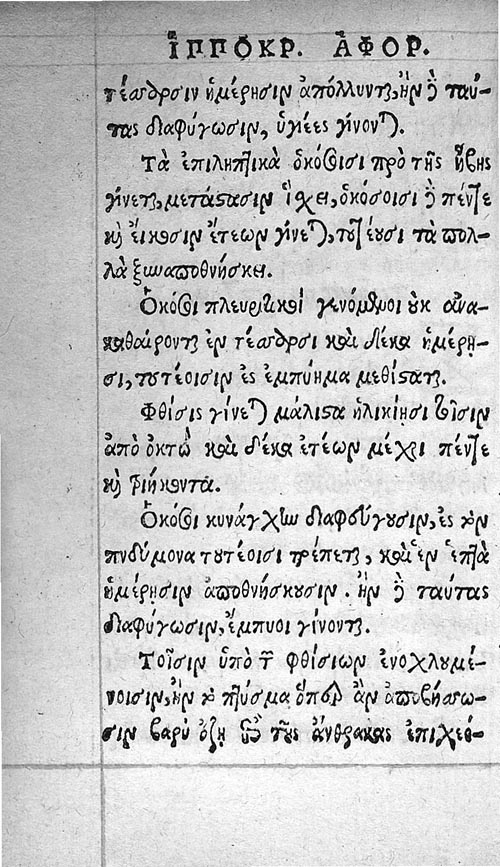 ἹΠΠΟΚΡ. ἈΦΟΡ.
τέσσαρσιν ἡμέρησιν ἀπόλλυνται, ἢν δὲ ταύ-
τας διαφύγωσιν, ὑγιέες γίνονται.
Τὰ ἐπιληπτικὰ ὁκόσοισι πρὸ τῆς ἥβης
γίνεται, μετάστασιν ἴχει, ὁκόσοισι δὲ πέντε
καὶ εἴκοσιν ἔτεων γίνεται, τουτέοισι τὰ πολ-
λὰ ξυναποθνήσκει.
Ὁκόσοι πλευριτικοὶ γενόμενοι οὐκ ἀνα-
καθαίρονται ἐν τέσσαρσι καὶ δέκα ἡμέρη-
σι, τουτέοισιν ἐς ἐμπύημα μεθίσταται.
Φθίσις γίνεται μάλιστα ἡλικίησι τοῖσιν
ἀπὸ ὀκτὼ καὶ δέκα ἐτέων μέχρι πέντε
καὶ τριήκοντα.
Ὁκόσοι κυνάγχην διαφεύγουσιν, ἐς τὸν
πνεύμονα τουτέοισι τρέπεται, καὶ ἐν ἑπτὰ
ἡμέρησιν ἀποθνήσκουσιν. ἢν δὲ ταύτας
διαφύγωσιν, ἔμπυοι γίνονται.
Τοῖσιν ὑπὸ τῶν φθισίων ἐνοχλουμέ-
νοισιν, ἢν τὸ πτύσμα ὅπερ ἂν ἀποβήσσω-
σιν βαρὺ ὄζῃ ἐπὶ τοὺς ἄνθρακας ἐπιχεό-